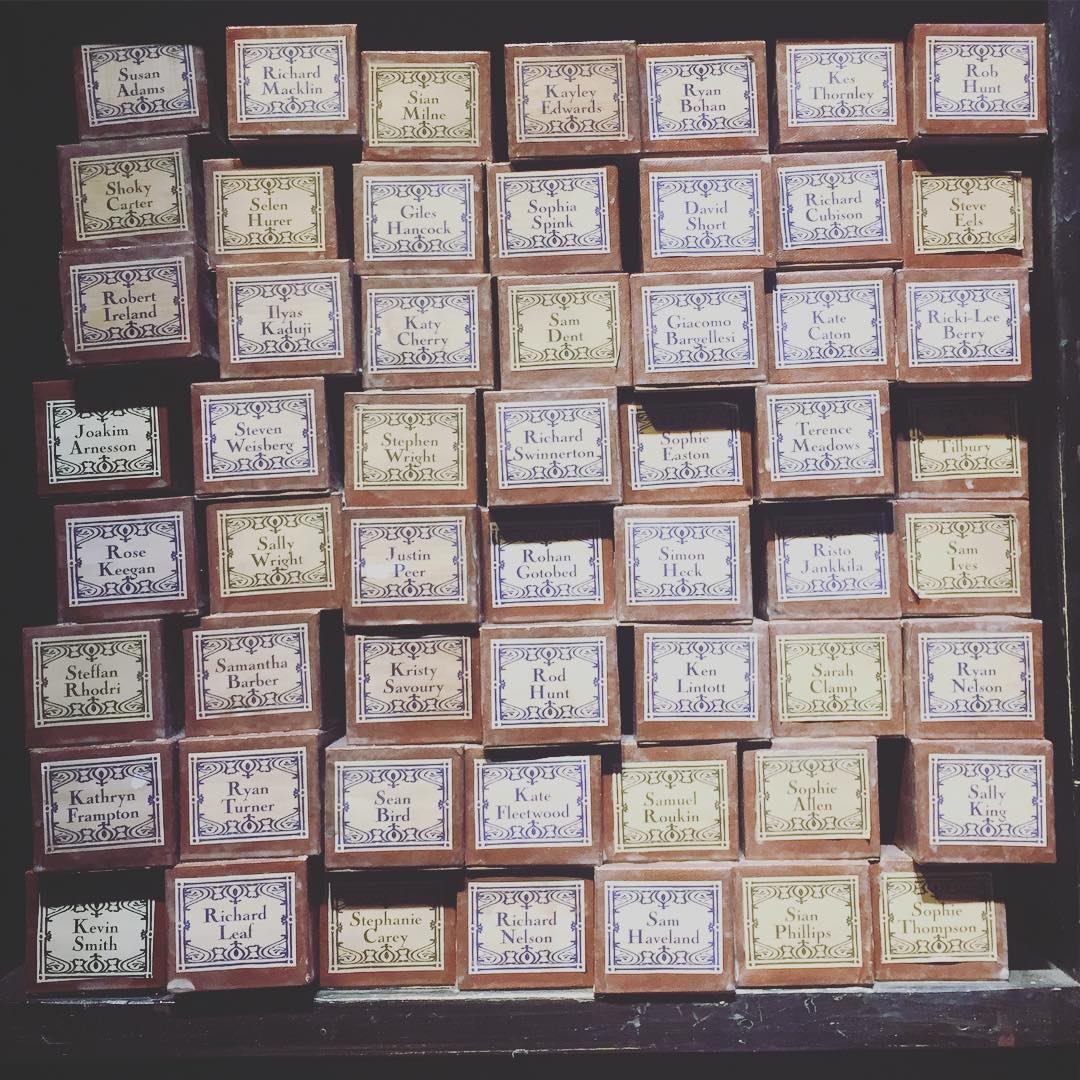 Susan
Adams
Richard
Macklin
Sian
Milne
Kayley
Edwards
Ryan
Bohan
Kes
Thornley
Rob
Hunt
Shoky
Carter
Selen
Hurer
Giles
Hancock
Sophia
Spink
David
Short
Richard
Cubison
Steve
Eels
Robert
Ireland
Ilyas
Kaduji
Katy
Cherry
Sam
Dent
Giacomo
Bargellesi
Kate
Caton
Ricki-Lee
Berry
Joakim
Arnesson
Steven
Weisberg
Stephen
Wright
Richard
Swinnerton
Sophie
Easton
Terence
Meadows
Tilbury
Rose
Keegan
Sally
Wright
Justin
Peer
Rohan
Gotobed
Simon
Heck
Risto
Jankkila
Sam
Ives
Steffan
Rhodri
Samantha
Barber
Kristy
Savoury
Rod
Hunt
Ken
Lintott
Sarah
Clamp
Ryan
Nelson
Kathryn
Frampton
Ryan
Turner
Sean
Bird
Kate
Fleetwood
Samuel
Roukin
Sophie
Allen
Sally
King
Kevin
Smith
Richard
Leaf
Stephanie
Carey
Richard
Nelson
Sam
Haveland
Sian
Phillips
Sophie
Thompson